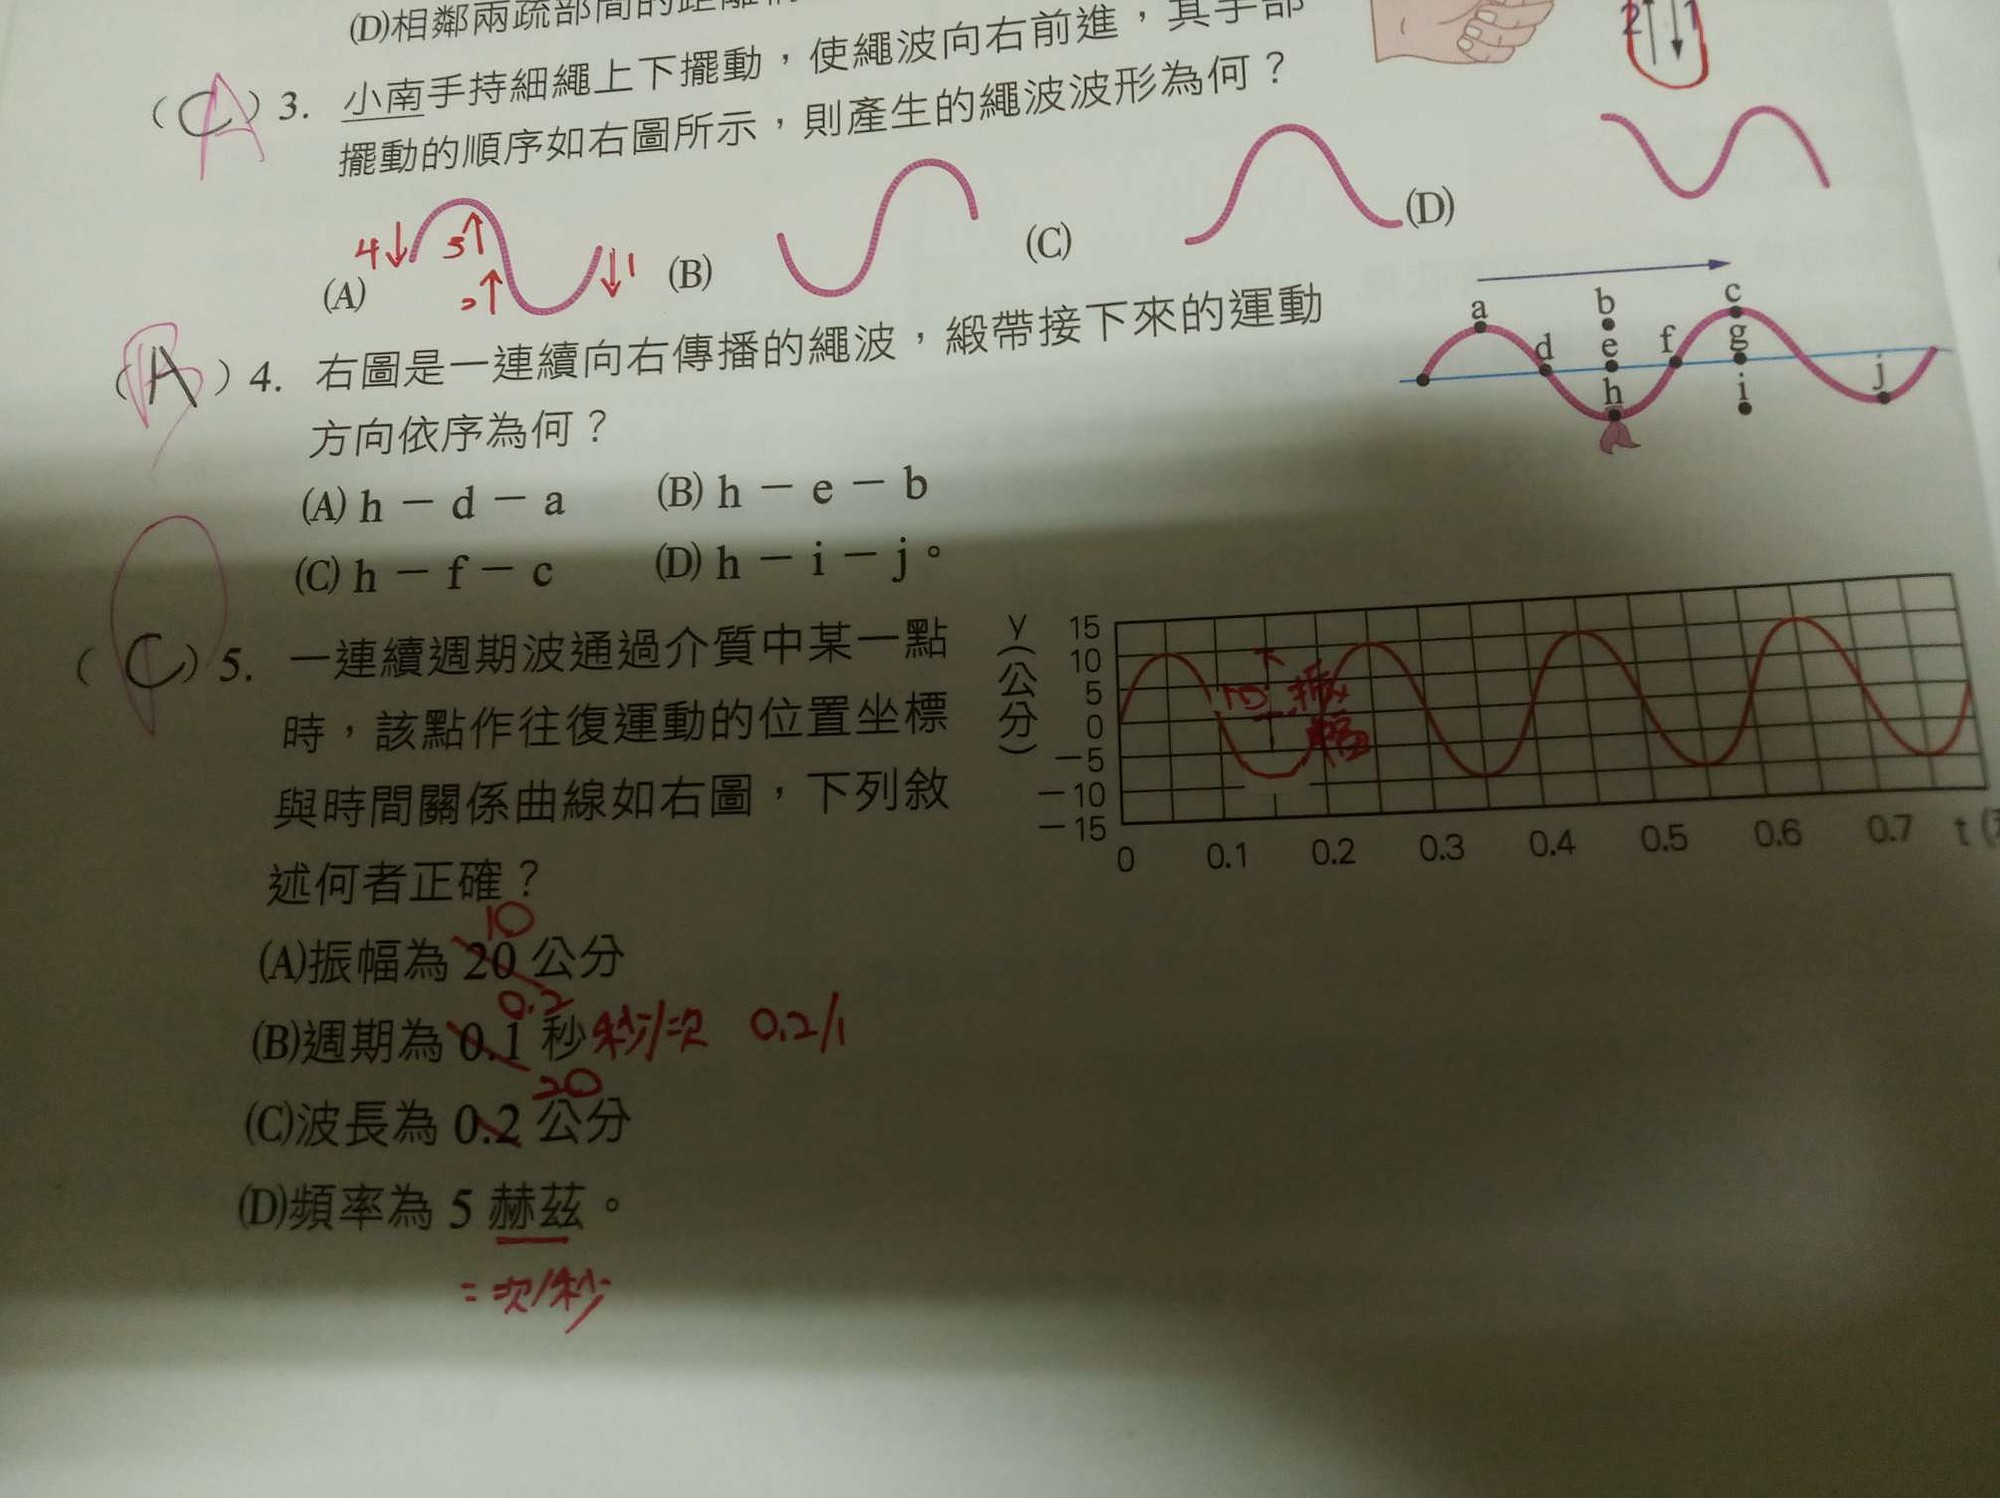 (D)相鄰兩疏部間的距離
(C) 3. 小南手持細繩上下擺動，使繩波向右前進，其手部
A
擺動的順序如右圖所示，則產生的繩波波形為何？
2 1
(A) (B) (C) (D)
4 3 2 1
(A) 4. 右圖是一連續向右傳播的繩波，緞帶接下來的運動
B
方向依序為何？
a b c
d e f g
h i j
(A) h － d － a (B) h － e － b
(C) h － f － c (D) h － i － j。
(C) 5. 一連續週期波通過介質中某一點
時，該點作往復運動的位置坐標
與時間關係曲線如右圖，下列敘
述何者正確？
Y(公分)
15
10
5
0
－5
－10
－15
0 0.1 0.2 0.3 0.4 0.5 0.6 0.7 t(
10 振幅
10
(A)振幅為 20 公分
0.2
(B)週期為 0.1 秒 秒/次 0.2/1
20
(C)波長為 0.2 公分
(D)頻率為 5 赫茲。
=次/秒